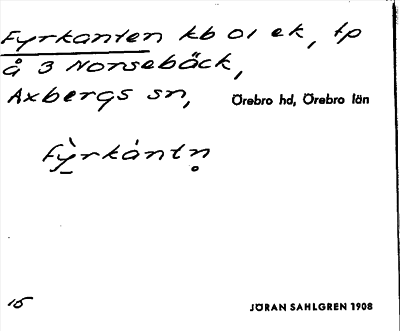 Fyrkanten kb ol ek, tp
å 3 Norsebäck,
Axbergs sn, Örebro hd, Örebro län
fỳ̠rkántn̥
15 JÖRAN SAHLGREN 1908